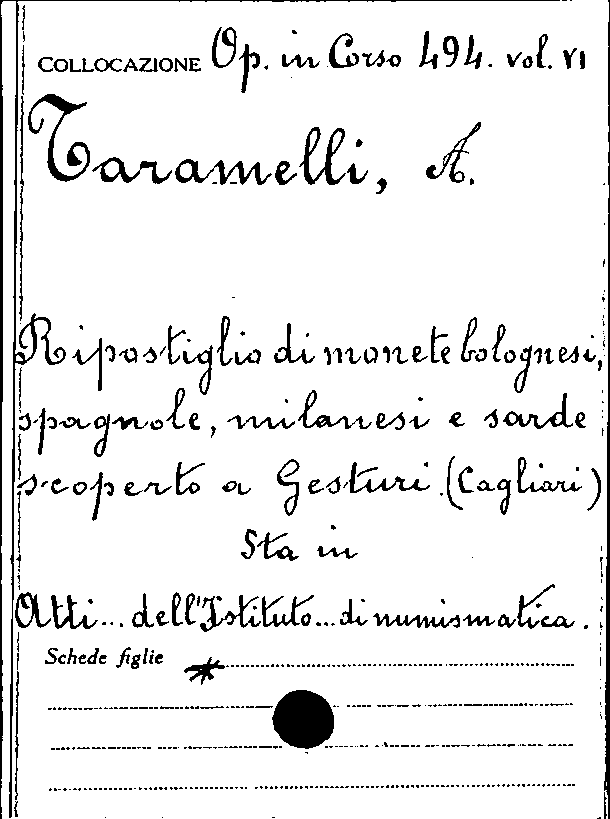 COLLOCAZIONE Op. in Corso 494. vol. VI
Taramelli, A.
Ripostiglio di monete bolognesi,
spagnole, milanesi e sarde
scoperto a Gesturi (Cagliari)
Sta in
Atti... dell'Istituto... di numismatica.
Schede figlie *